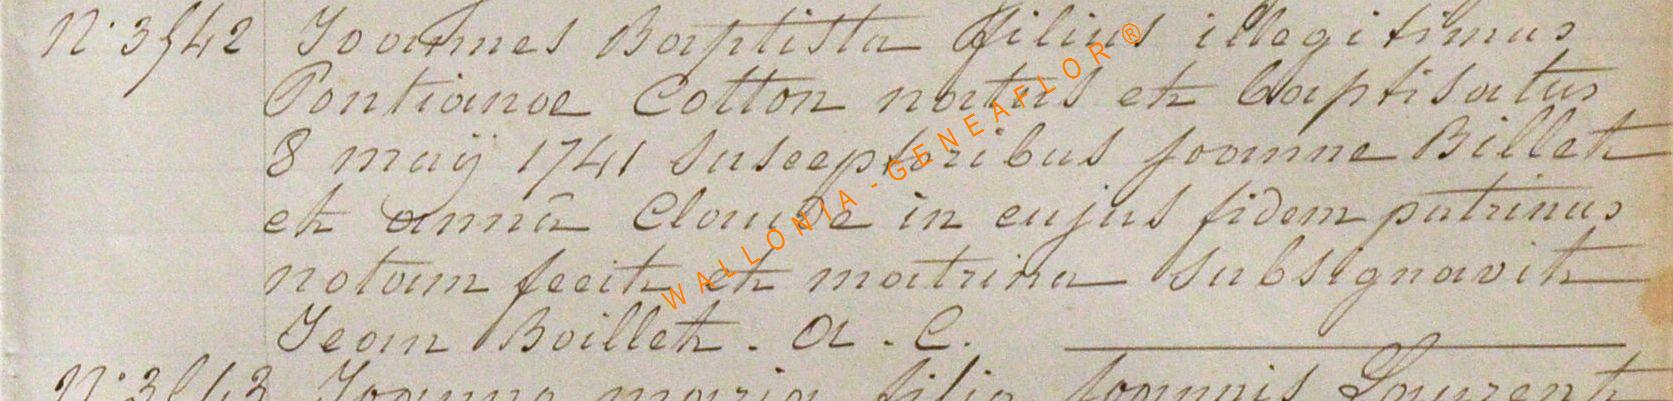 N° 3542 Joannes Baptista filius illegitimus
Pontianae Cotton natus et baptisatus
8 maÿ 1741 susceptoribus joanne Billet
et annâ Claude in cujus fidem patrinus
notam fecit et matrina subsignavit
Jean Boillet. A. C.
N° 3543 Joanna maria filia Joannis Laurent
WALLONIA - GENEAFLOR ®